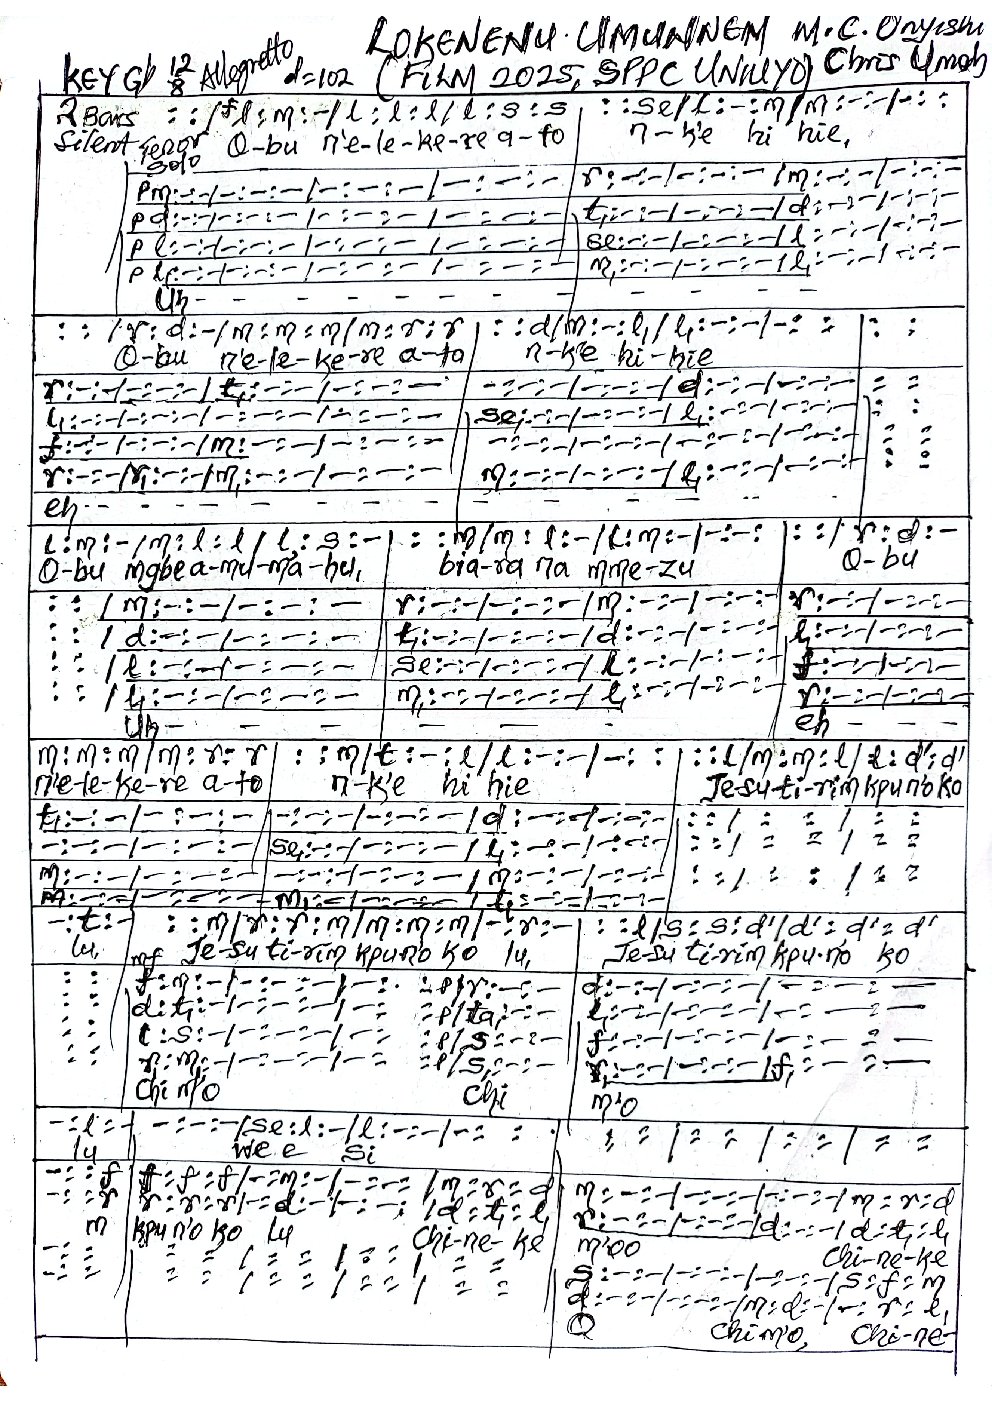 LOKENENU UMUNNEM M.C. Onyishi
KEY Gb 12/8 Allegretto d=102 (FILM 2025, SPPC UNIUYO) Chris Umoh
2 Bars : : /f l : m : - / l : l : l / l : s : s : : se / l : - : m / m : - : - / - : :
Silent Tenor solo O-bu n'e-le-ke-re a-to n-k'e hi hie,
p m : - : - / - : - : - / - : - : - / - : - : - r : - : - / - : - : - / m : - : - / - : - : -
p d : - : - / - : - : - / - : - : - / - : - : - t, : - : - / - : - : - / d : - : - / - : - : -
p l : - : - / - : - : - / - : - : - / - : - : - se : - : - / - : - : - / l : - : - / - : - : -
p l, : - : - / - : - : - / - : - : - / - : - : - m, : - : - / - : - : - / l, : - : - / - : - : -
Uh - - - - - - - - - - - -
: : / r : d : - / m : m : m / m : r : r : : d / m : - : l, / l, : - : - / - : : : :
O-bu n'e-le-ke-re a-to n-k'e hi-hie
r : - : - / - : - : - / t, : - : - / - : - : - - : - : - / - : - : - / d : - : - / - : - : - : :
l, : - : - / - : - : - / - : - : - / - : - : - se, : - : - / - : - : - / l, : - : - / - : - : - : :
f : - : - / - : - : - / m : - : - / - : - : - - : - : - / - : - : - / - : - : - / - : - : - : :
r : - : - / r, : - : - / m, : - : - / - : - : - m, : - : - / - : - : - / l, : - : - / - : - : - : :
eh - - - - - - - - - - - -
l : m : - / m : l : l / l : s : - : : m / m : l : - / l : m : - / - : - : : : / r : d : -
O-bu mgbe a-mu-ma-hu, bia-ra na mme-zu O-bu
: : / m : - : - / - : - : - r : - : - / - : - : - / m : - : - / - : - : - r : - : - / - : - : -
: : / d : - : - / - : - : - t, : - : - / - : - : - / d : - : - / - : - : - l, : - : - / - : - : -
: : / l : - : - / - : - : - se : - : - / - : - : - / l : - : - / - : - : - f : - : - / - : - : -
: : / l, : - : - / - : - : - m, : - : - / - : - : - / l, : - : - / - : - : - r : - : - / - : - : -
Uh - - - - - - - eh - - -
m : m : m / m : r : r : : m / t : - : l / l : - : - / - : : : : l / m : m : l / l : d' : d'
n'e-le-ke-re a-to n-k'e hi hie Je-su-ti-rim kpu n'o ko
t, : - : - / - : - : - - : - : - / - : - : - / d : - : - / - : - : - : : / : : / : :
- : - : - / - : - : - se, : - : - / - : - : - / l, : - : - / - : - : - : : / : : / : :
m : - : - / - : - : - - : - : - / - : - : - / m : - : - / - : - : - : : / : : / : :
m : - : - / - : - : - m, : - : - / - : - : - / l, : - : - / - : - : -
- : t : - : : m / r : r : m / m : m : m / - : r : - : : l / s : s : d' / d' : d' : d'
lu, mf Je-su ti-rim kpu-n'o ko lu, Je-su ti-rim kpu-n'o ko
: : f : m : - / - : - : - / - : - : : p / r : - : - d : - : - / - : - : - / - : - : -
: : d : t, : - / - : - : - / - : - : p / ta, : - l, : - : - / - : - : - / - : - : -
: : l : s : - / - : - : - / - : - : p / s : - : - f : - : - / - : - : - / - : - : -
: : r : m, : - / - : - : - / - : - : p / s, : - : - r, : - : - / - : - : - / f, : - : -
Chi m'o Chi m'o
- : l : - - : - : - / se : l : - / l : - : - / - : : : : / : : / : : / : :
lu we e si
- : : f f : f : f / - : m : - / - : - : - / m : r : d m : - : - / - : - : - / - : - : - / m : r : d
- : : r r : r : r / - : d : - / - : - : / d : t, : l, r : - : - / - : - : - / d : - : - / d : t, : l,
m kpu n'o ko lu Chi-ne-ke m'oo Chi-ne-ke
- : : : : / : : / : : / : : s : - : - / - : - : - / - : - : - / s : f : m
- : : : : / : : / : : / : : d : - : - / - : - : - / m : d : - / - : r : l,
O Chi m'o, Chi-ne-